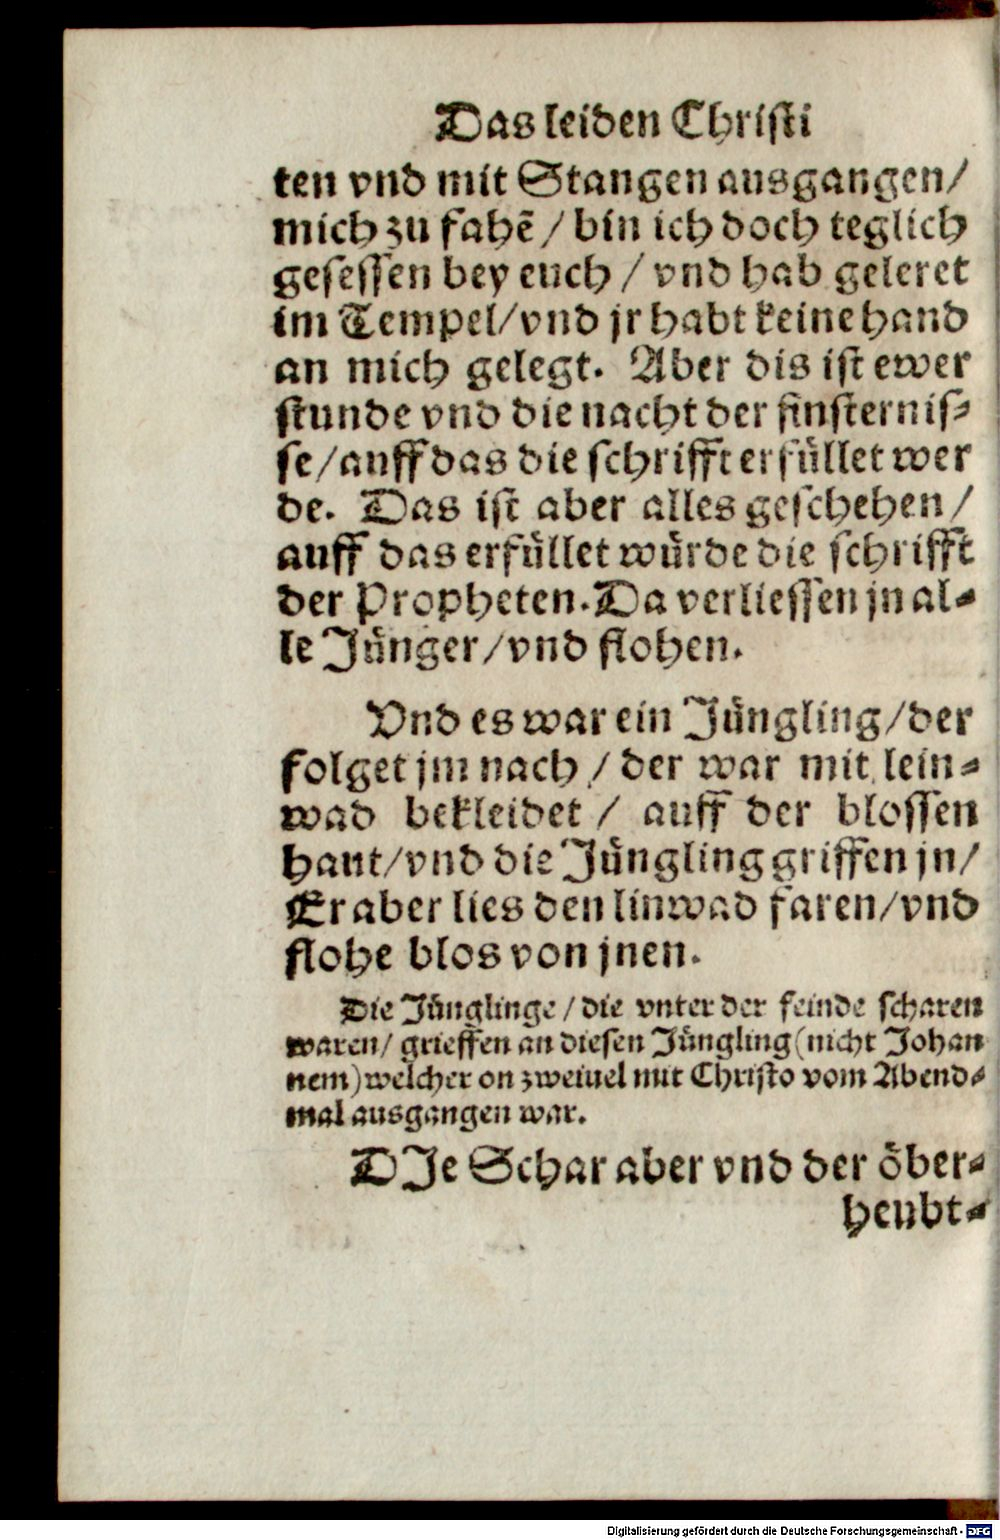 Das leiden Christi
ten vnd mit Stangen ausgangen/
mich zu fahē / bin ich doch teglich
gesessen bey euch / vnd hab geleret
im Tempel/vnd jr habt keine hand
an mich gelegt. Aber dis ist ewer
stunde vnd die nacht der finsternis-
se/auff das die schrifft erfüllet wer
de. Das ist aber alles geschehen/
auff das erfüllet würde die schrifft
der Propheten. Da verliessen jn al-
le Jünger/vnd flohen.
Vnd es war ein Jüngling/der
folget jm nach / der war mit lein-
wad bekleidet / auff der blossen
haut/vnd die Jüngling griffen jn/
Er aber lies den linwad faren/vnd
flohe blos von jnen.
Die Jünglinge / die vnter der feinde scharen
waren/ grieffen an diesen Jüngling (nicht Johan
nem) welcher on zweiuel mit Christo vom Abend-
mal ausgangen war.
DJe Schar aber vnd der öber-
heubt-
Digitalisierung gefördert durch die Deutsche Forschungsgemeinschaft - DFG